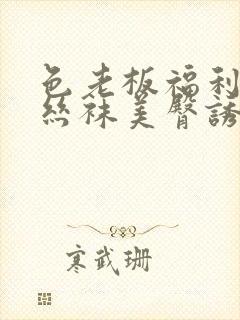 色老板福利
丝袜美臀誘
寒武珊